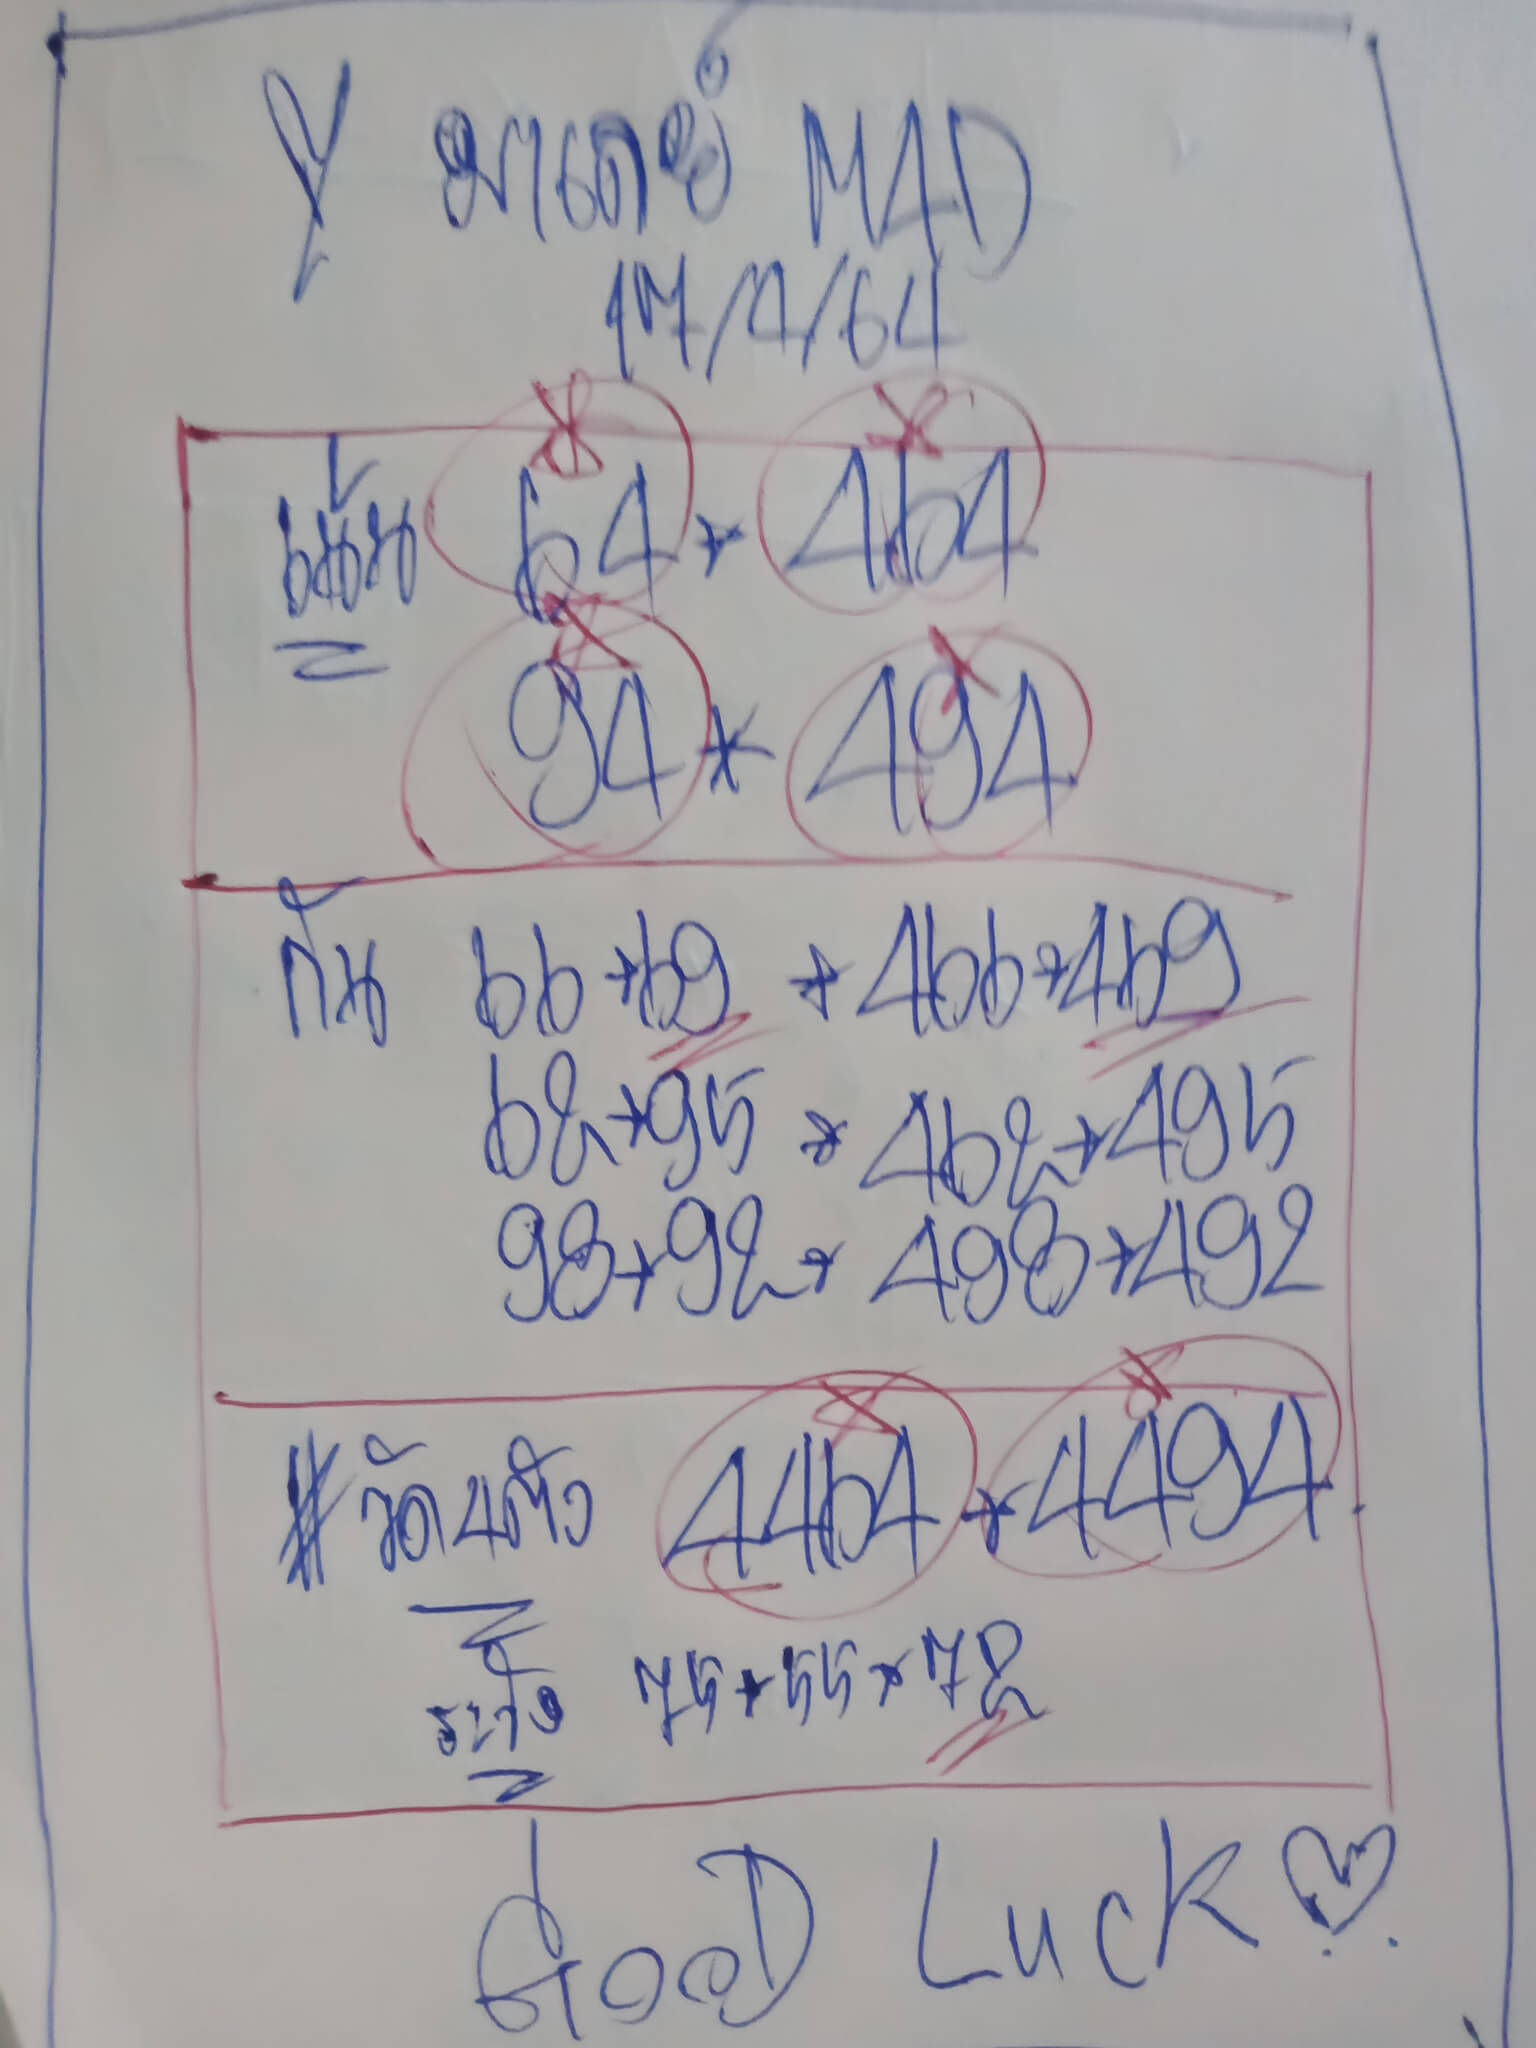 Y มาเดย์ MAD
17/4/64
เน้น 64 * 464
94 * 494
กัน 66*69 * 466*469
62*95 * 462*495
98*92* 498*492
#วัด4ตัว 4464*4494
ระวัง 75*55*72
Good Luck